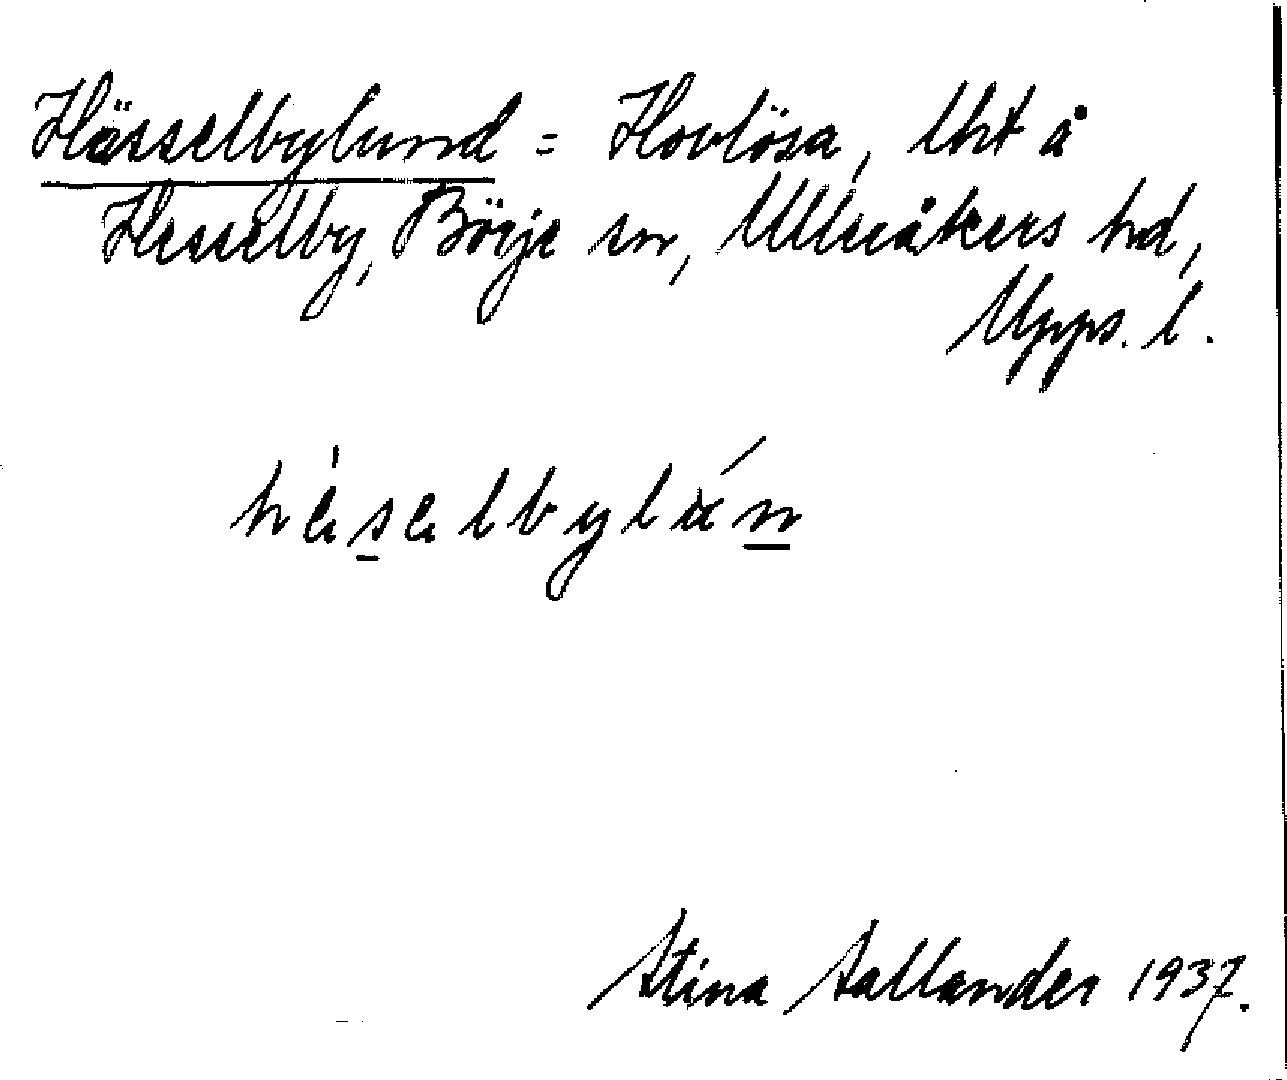 Hässelbylund = Hovlösa, lht å
Hesselby, Börje sn, Ulleråkers hd,
Upps. l.
hèselbylún
Stina Sallander 1937.